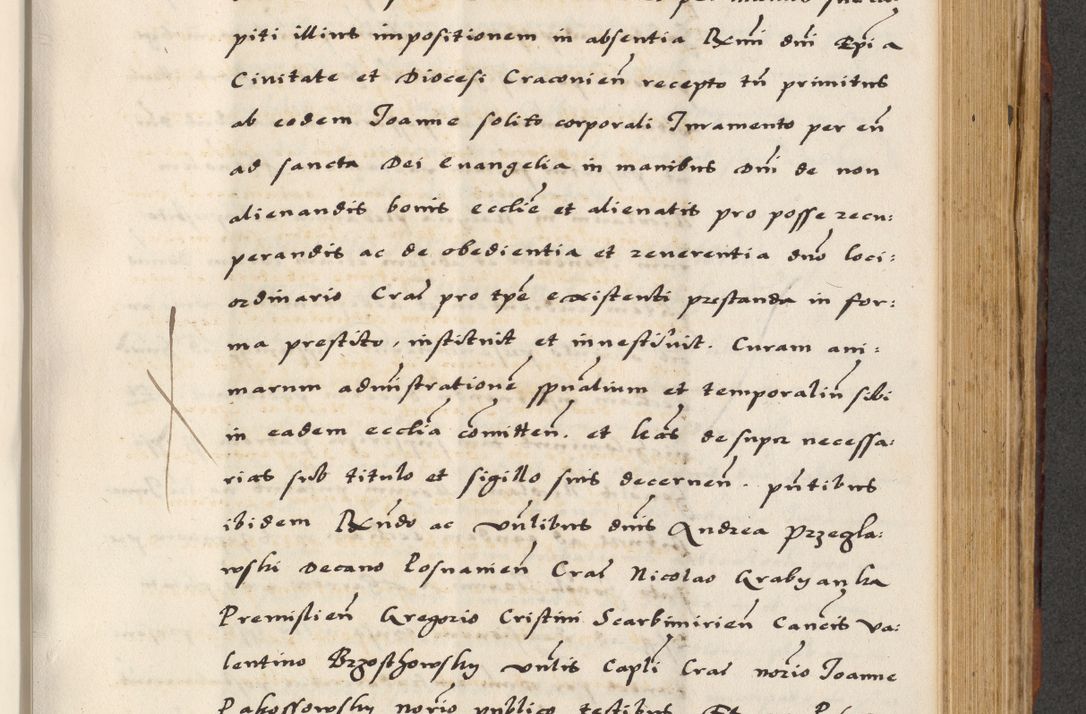 piti illius impositionem in absentia Rmi dni Epi a
Civitate et Diocesi Cracovien recepto tn primitus
ab eodem Joanne solito corporali Juramento per eu
ad sancta Dei Evangelia in manibus Dni de non
alienandis bonis ecclie et alienatis pro posse recu:
perandis ac de obedientia et reverentia dno loci:
ordinario Crac pro tpe existenti prestanda in for:
ma prestito, instituit et investivit. Curam ani:
marum admistratione spualium et temporaliu sibi
in eadem ecclia comitten. et lras desuper necessa:
rias sub titulo et sigillo suis decernen. pntibus
ibidem Rndo ac Vnlibus dnis Andrea Przecla:
wski Decano Posnanien Crac Nicolao Grabyanka
Premislien Gregorio Cristini Scarbimirien Cancis Va:
lentino Brzosthowsky vnlis Capli Crac norio Joanne
Pakossowsky norio publico testibus